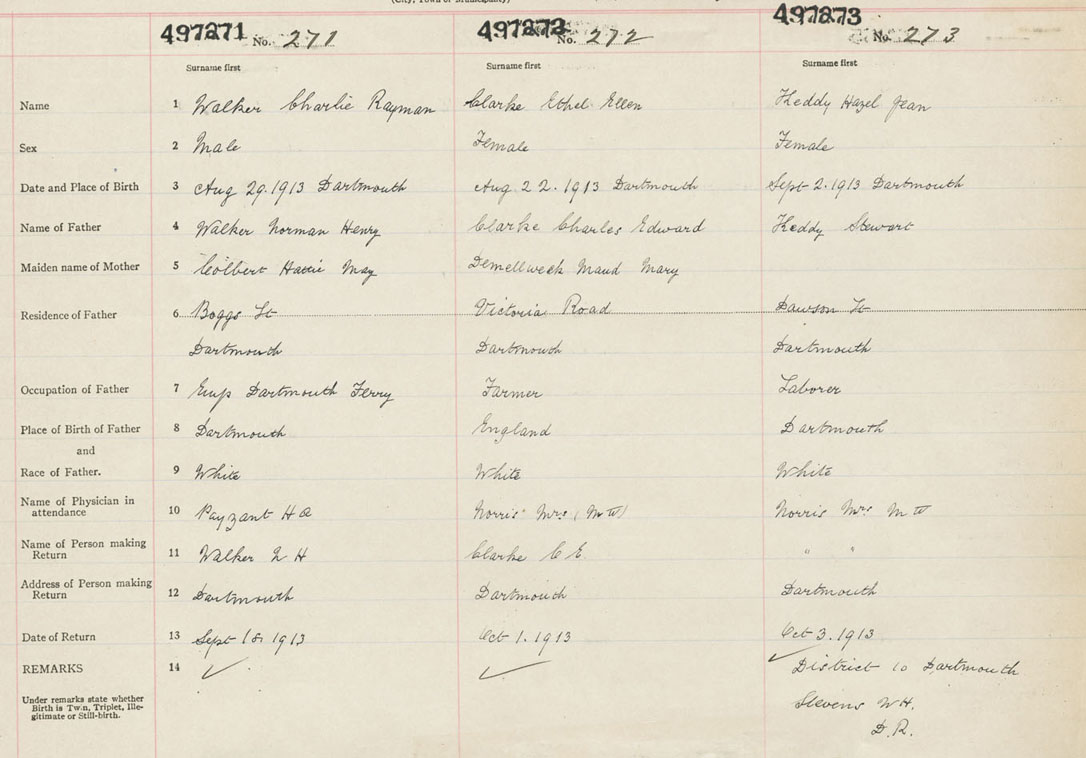 (City, Town or Municipality)
497271 No. 271
497272 No. 272
497273 No. 273
Surname first Surname first Surname first
Name 1 Walker Charlie Rayman Clarke Ethel Ellen Keddy Hazel Jean
Sex 2 Male Female Female
Date and Place of Birth 3 Aug 29. 1913 Dartmouth Aug 22. 1913 Dartmouth Sept 2. 1913 Dartmouth
Name of Father 4 Walker Norman Henry Clarke Charles Edward Keddy Stewart
Maiden name of Mother 5 Colbert Hattie May Maud Mary
Residence of Father 6 Boggs St Victoria Road Dawson St
Dartmouth Dartmouth Dartmouth
Occupation of Father 7 Emp Dartmouth Ferry Farmer Laborer
Place of Birth of Father 8 Dartmouth England Dartmouth
and
Race of Father. 9 White White White
Name of Physician in
attendance 10 Payzant H A Norris Mrs. (M W) Norris Mrs M W
Name of Person making
Return 11 Walker N H Clarke C E. " "
Address of Person making
Return 12 Dartmouth Dartmouth Dartmouth
Date of Return 13 Sept 18. 1913 Oct 1. 1913 Oct 3. 1913
REMARKS 14 ✓ ✓ ✓ District 10 Dartmouth
Under remarks state whether
Birth is Twin, Triplet, Ille-
gitimate or Still-birth.
Stevens W H.
D. R.